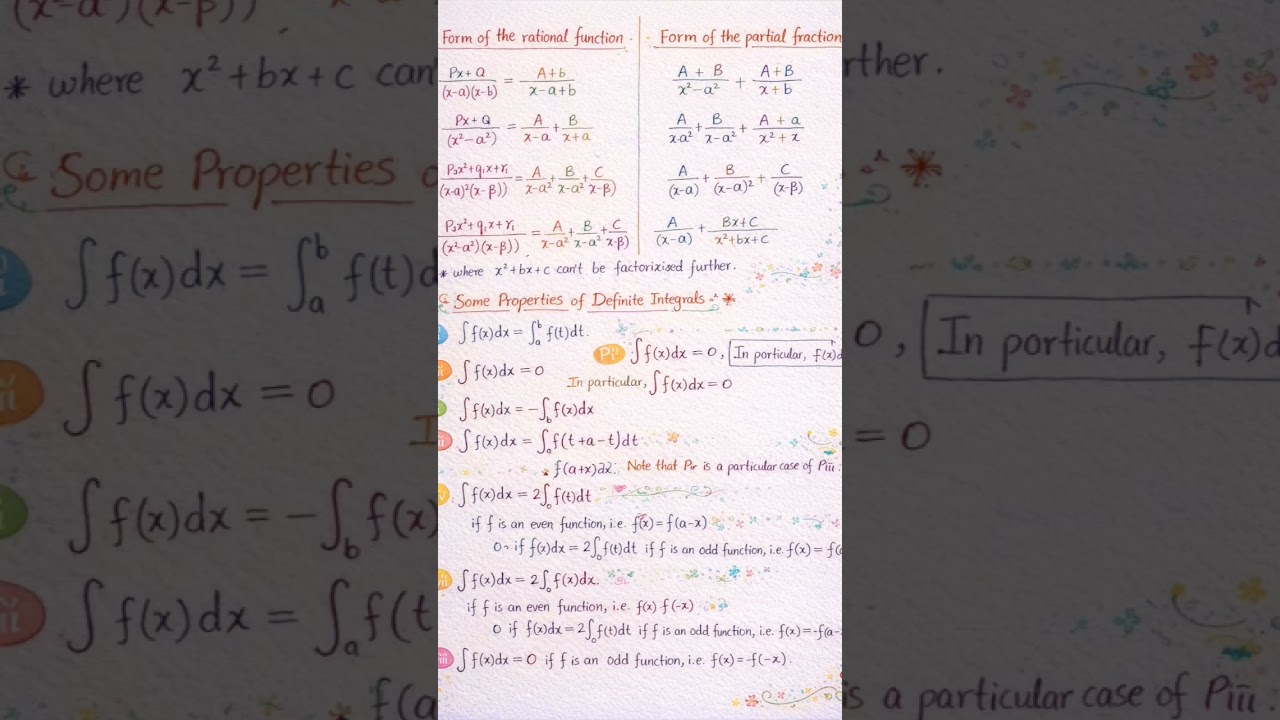 Form of the rational function. Form of the partial fraction
Px+Q/(x-a)(x-b) = A+b/x-a+b
A + B/x²-a² + A+B/x+b
Px+Q/(x²-a²) = A/x-a + B/x+a
A/x-a² + B/x-a² + A + a/x²+x
P₃x²+q₁x+r₁/(x-a)²(x-β)) = A/x-a² + B/x-a² + C/x-β)
A/(x-a) + B/(x-a)² + C/(x-β)
P₃x²+q₁x+r₁/(x²-a²)(x-β)) = A/x-a² + B/x-a² + C/x-β)
A/(x-a) + Bx+C/x²+bx+c
* where x²+bx+c can't be factorixised further.
Some Properties of Definite Integrals
∫f(x)dx = ∫ₐᵇ f(t)dt.
Pi ∫f(x)dx = 0, In particular, f(x)d
∫f(x)dx = 0
In particular, ∫f(x)dx = 0
∫f(x)dx = -∫_b f(x)dx
∫f(x)dx = ∫ₐf(t+a-t)dt
f(a+x)dx. Note that Piv is a particular case of Piii.
∫f(x)dx = 2∫₀f(t)dt
if f is an even function, i.e. f(x) = f(a-x)
0 = if f(x)dx = 2∫₀f(t)dt if f is an odd function, i.e. f(x) = f(a
∫f(x)dx = 2∫₀f(x)dx.
if f is an even function, i.e. f(x) f(-x)
0 if f(x)dx = 2∫₀f(t)dt if f is an odd function, i.e. f(x) = -f(a-
∫f(x)dx = 0 if f is an odd function, i.e. f(x) = -f(-x).